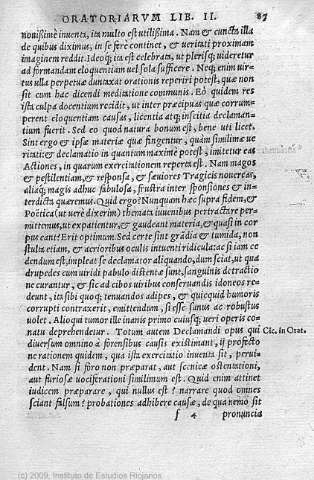 ORATORIARVM LIB. II. 87
nouißimè inuenta, ita multo est vtilißima. Nam & cuncta illa
de quibus diximus, in se ferè continet, & veritati proximam
imaginem reddit. Ideoq; ita est celebrata, ut plerisq; videretur
ad formandam eloquentiam vel sola sufficere. Neq; enim vir-
tus ulla perpetuæ duntaxat orationis reperiri potest, quæ non
sit cum hac dicendi meditatione communis. Eò quidem res
ista culpa docentium recidit, ut inter præcipuas quæ corrum-
perent eloquentiam causas, licentia atq; inscitia declaman-
tium fuerit. Sed eo quod natura bonum est, bene uti licet.
Sint ergo & ipsæ materiæ quæ fingentur, quàm simillimæ ve
ritati: & declamatio in quantum maximè potest, imitetur eas
Actiones, in quarum exercitationem reperta est. Nam magos
& pestilentiam, & responsa, & sæuiores Tragicis nouercas,
aliaq; magis adhuc fabulosa, frustra inter sponsiones & in-
terdicta quæremus. Quid ergo? Nunquam hæc supra fidem, &
Poëtica (ut verè dixerim) themata iuuenibus pertractare per-
mittemus, ut expatientur, & gaudeant materia, & quasi in cor
pus eant? Erit optimum. Sed certe sint grādia & tumida, non
stulta etiam, & acrioribus oculis intuenti ridicula: ac si iam ce
dendum est, impleat se declamator aliquando, dum sciat, ut qua
drupedes cum viridi pabulo distentæ sunt, sanguinis detractio
ne curantur, & sic ad cibos viribus conseruandis idoneos re-
deunt, ita sibi quoq; tenuandos adipes, & quicquid humoris
corrupti contraxerit, emittendum, si esse sanus ac robustus
volet. Alioqui tumor ille inanis primo cuiusq; veri operis co-
natu deprehendetur. Totum autem Declamandi opus qui
Cic. in Orat.
diuersum omnino à forensibus causis existimant, ij profectò
ne rationem quidem, qua ista exercitatio inuenta sit, perui-
dent. Nam si foro non præparat, aut scenicæ ostentationi,
aut furiosæ vociferationi simillimum est. Quid enim attinet
iudicem præparare, qui nullus est? narrare quod omnes
sciant falsum? probationes adhibere causæ, de qua nemo sit
f 4 pronuncia
(c) 2009, Instituto de Estudios Riojanos